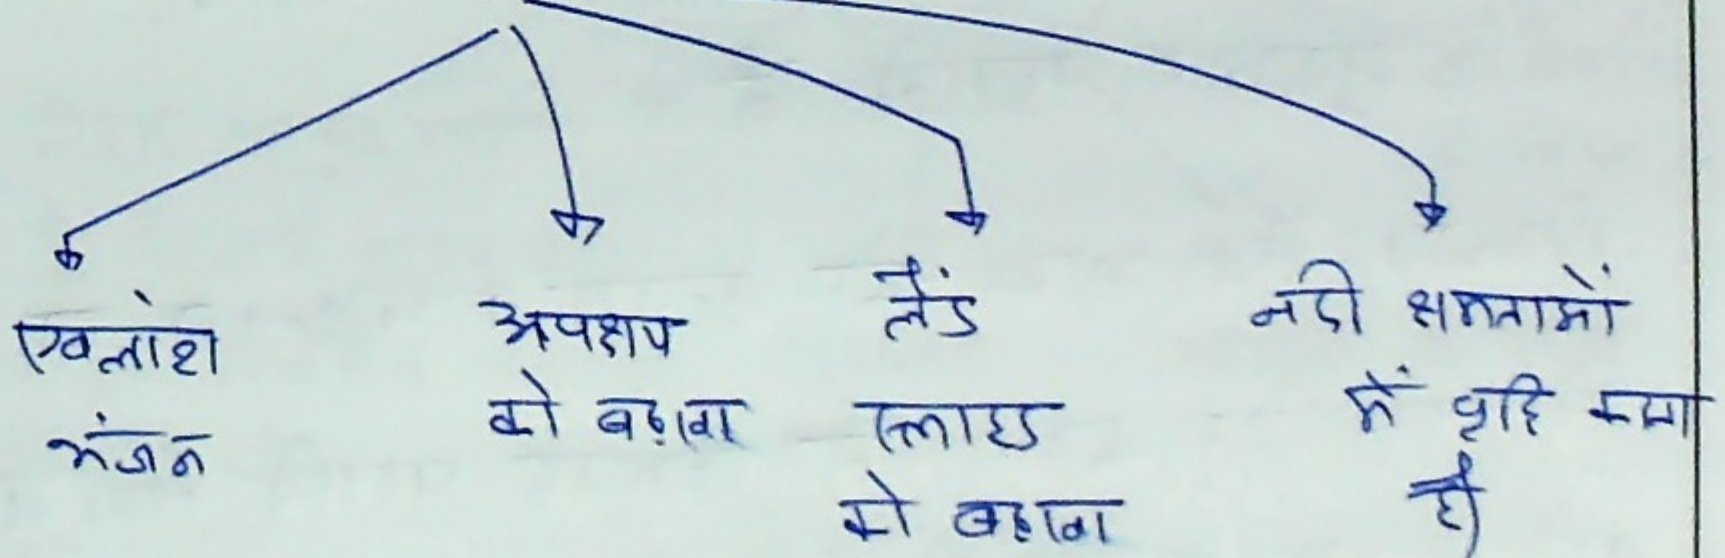 भंजन
अपक्षय
को बढ़ावा
लैंड
स्लाइड
को बढ़ावा
नदी क्षमताओं
में वृद्धि करता
है